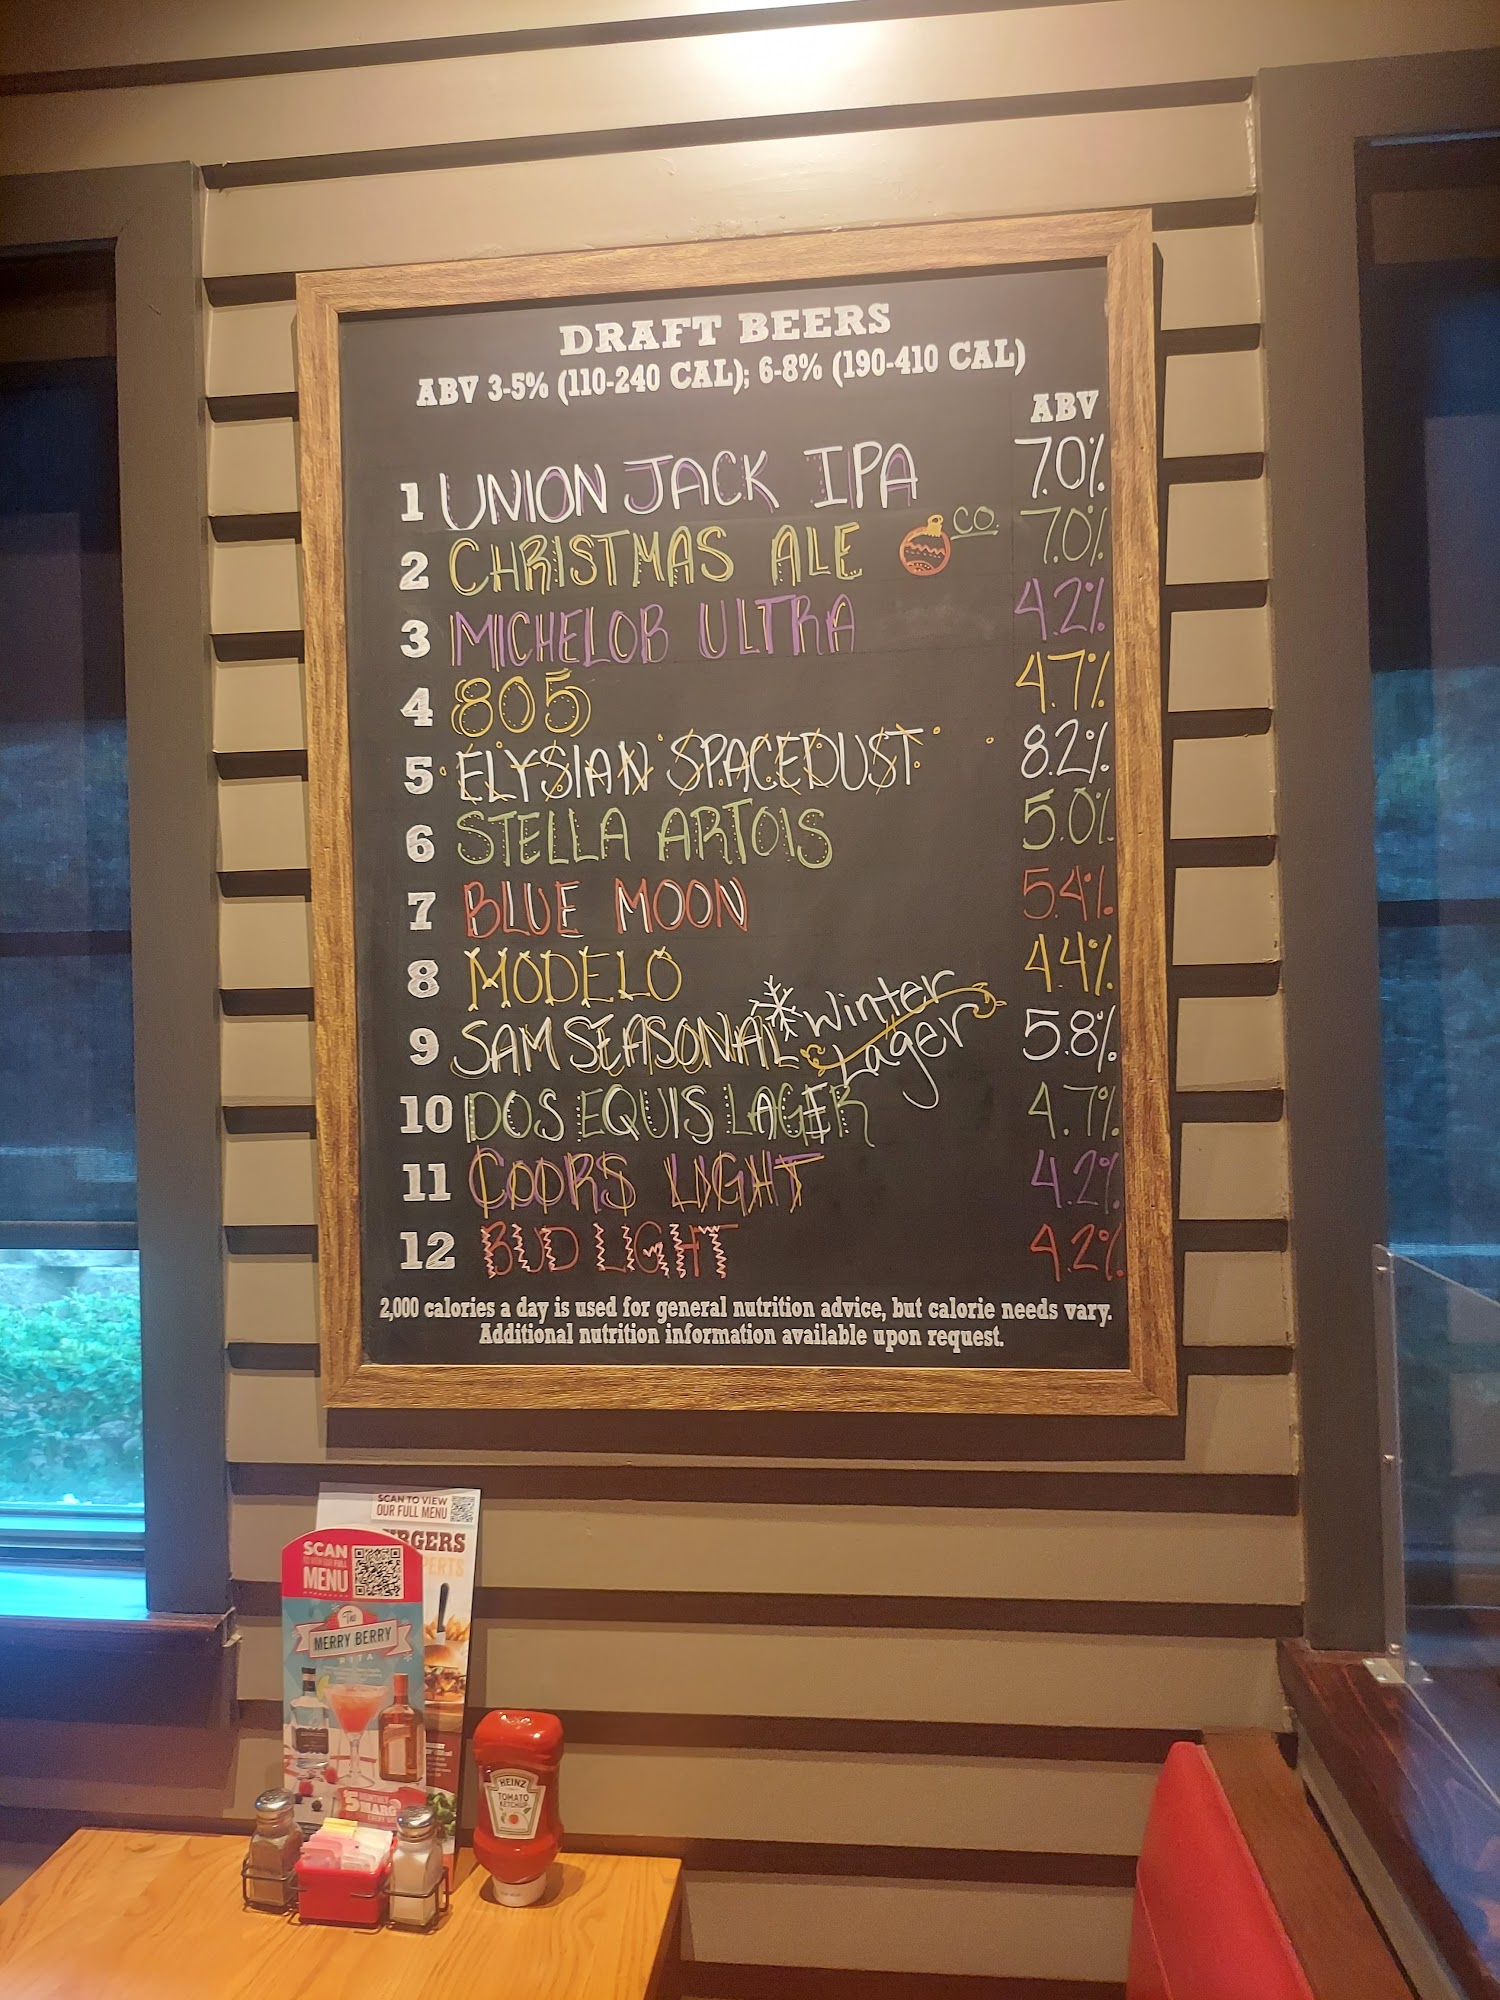 DRAFT BEERS
ABV 3-5% (110-240 CAL); 6-8% (190-410 CAL)
ABV
1 UNION JACK IPA 7.0%
2 CHRISTMAS ALE CO. 7.0%
3 MICHELOB ULTRA 4.2%
4 805 4.7%
5 ELYSIAN SPACEDUST 8.2%
6 STELLA ARTOIS 5.0%
7 BLUE MOON 5.4%
8 MODELO 4.4%
9 SAM SEASONAL Winter Lager 5.8%
10 DOS EQUIS LAGER 4.7%
11 COORS LIGHT 4.2%
12 BUD LIGHT 4.2%
2,000 calories a day is used for general nutrition advice, but calorie needs vary.
Additional nutrition information available upon request.
SCAN TO VIEW
OUR FULL MENU
SCAN
TO VIEW OUR FULL
MENU
The
MERRY BERRY
RITA
$5
HEINZ
TOMATO
KETCHUP